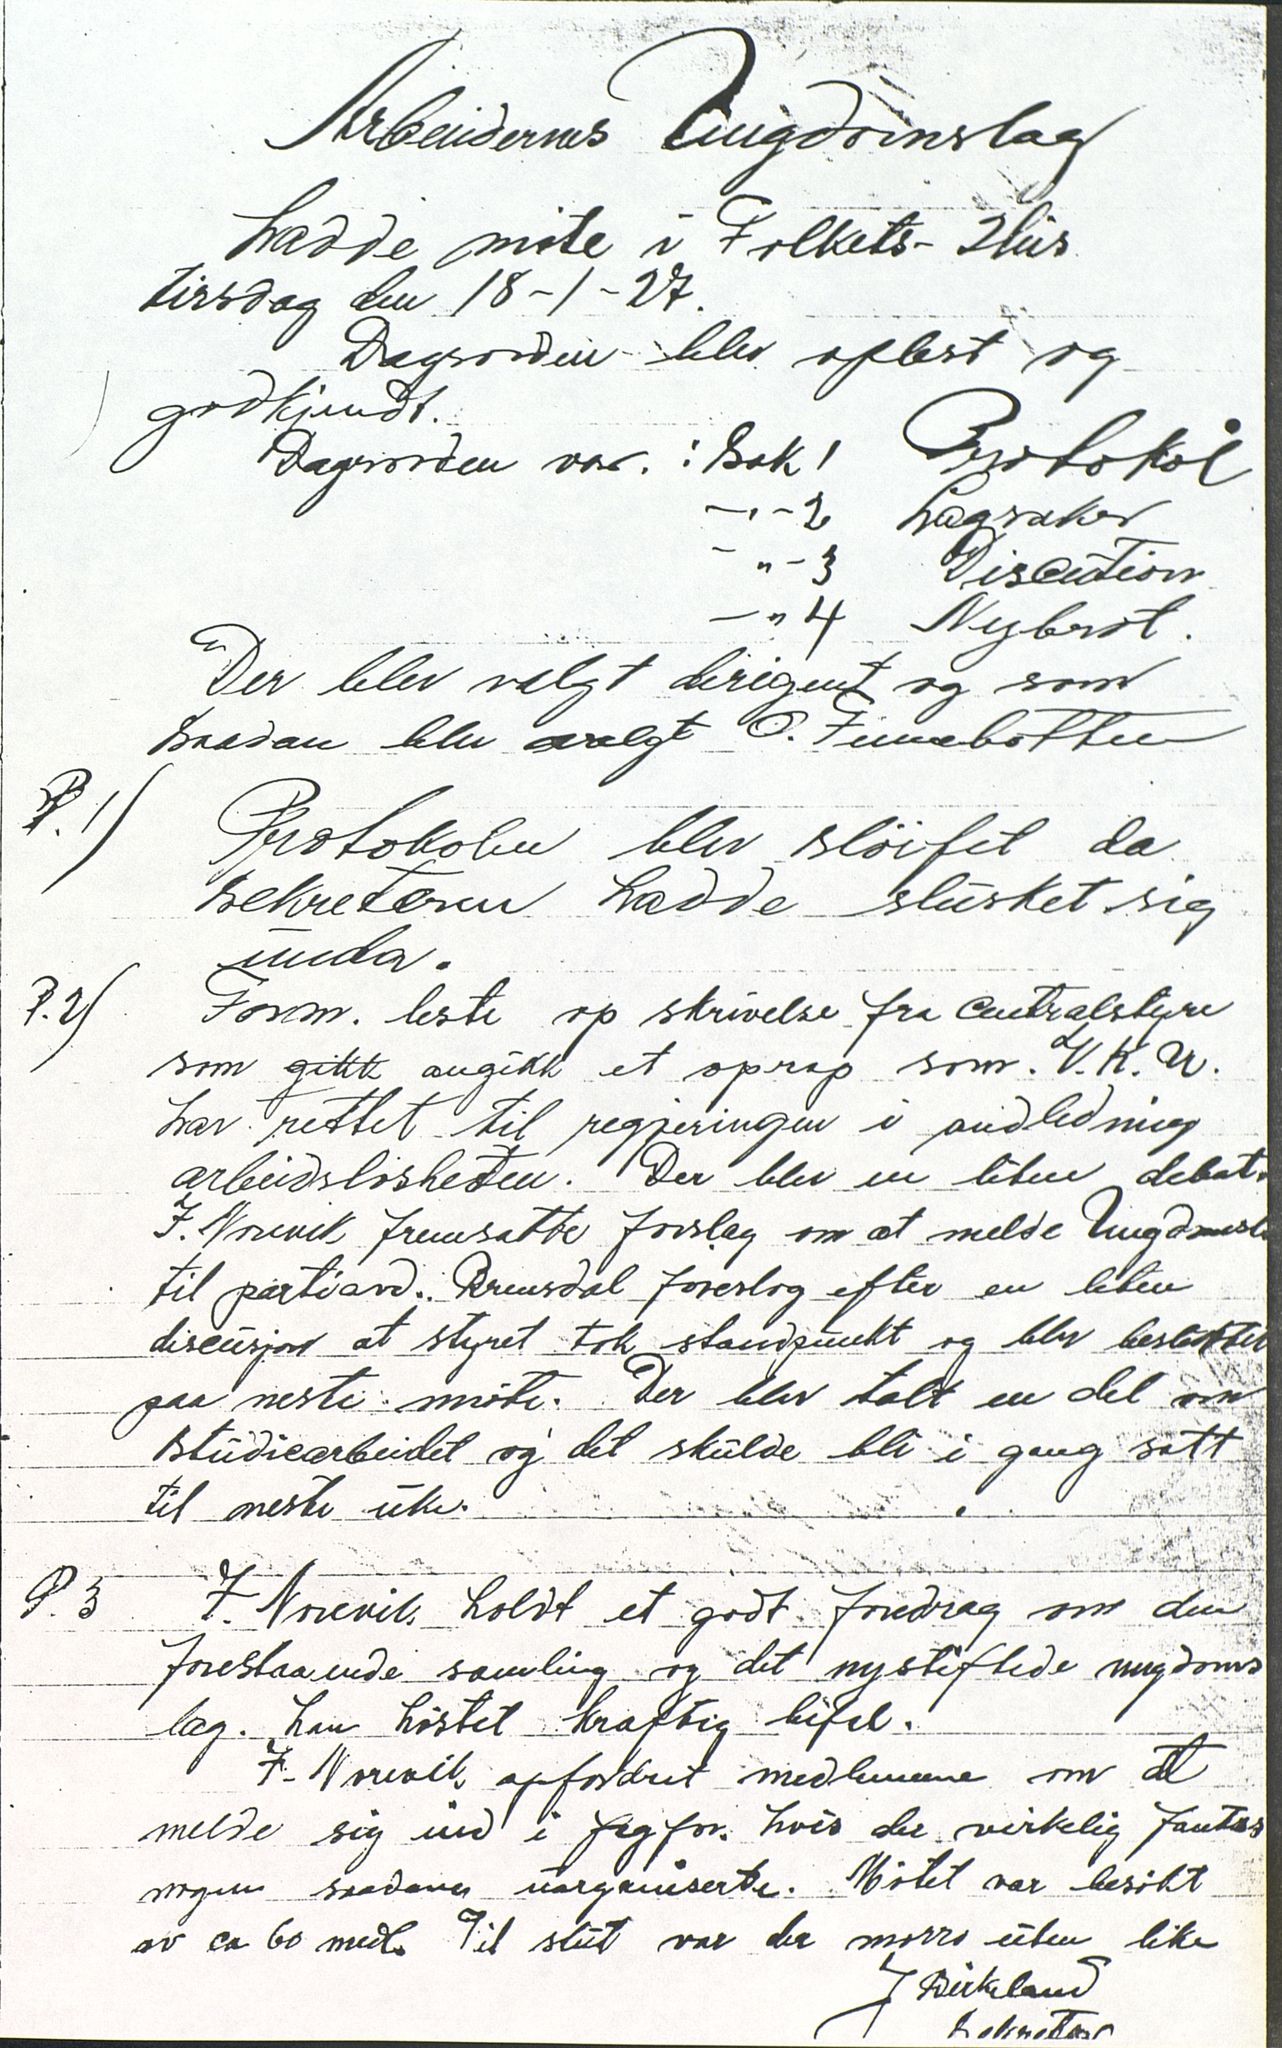 Arbeidernes Ungdomslag
hadde møte i Folkets-Hus
tirsdag den 18-1-27.
Dagsorden blev oplest og
godkjendt.
Dagsorden var. : Sak 1 Protokol
-"-2 Lagsaker
"-3 Discution
-"4 Nybrot.
Der blev valgt dirigent og som
saadan blev valgt O. Funnebotten
P. 1) Protokolen blev sløifet da
sekretæren hadde slusket sig
unda.
P. 2) Form. leste op skrivelse fra centralstyre
som gikk angikk et oprop som. V. K. U.
har rettet til regjeringen i andledning
arbeidsløsheten. Der blev en liten debat.
F. Norevik fremsatte forslag om at melde Ungdomsl.
til partiavd.. Brunsdal foreslog efter en liten
discusjon at styret tok standpunkt og blev besluttet
paa neste møte. Der blev talt en del om
studiearbeidet og det skulde bli i gang satt
til neste uke.
P. 3 F. Norevik holdt et godt foredrag om den
forestaaende samling og det nystiftede ungdoms
lag. han høstet kraftig bifal.
F. Norevik opfordret medlemmene om at
melde sig ind i fagfor. hvis der virkelig fantes
nogen saadanne uorganiserte. Møtet var besøkt
av ca 60 medl. Til slut var der morro uten like
J Birkeland
Sekretær